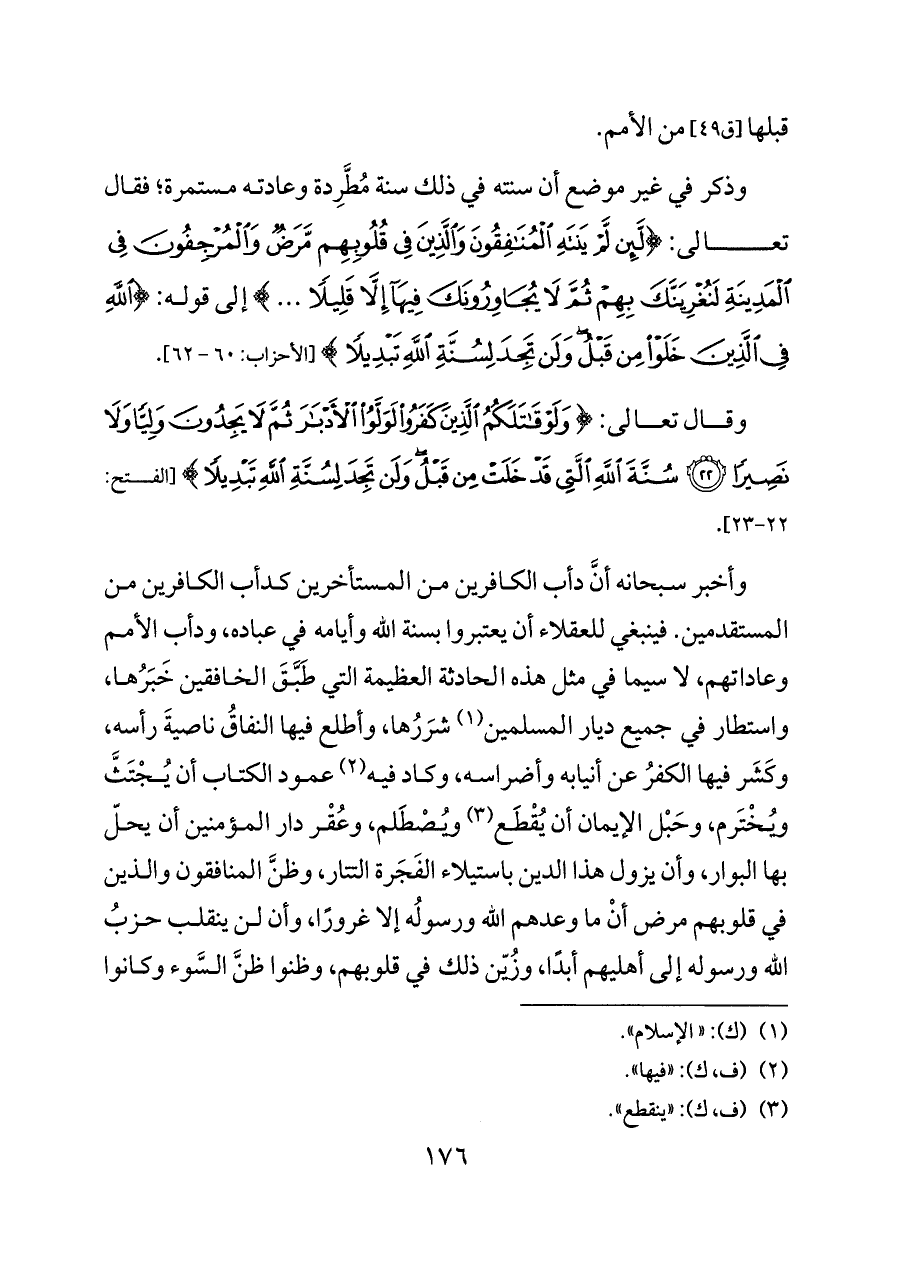 قبلها [ق٤٩] من الأمم.
وذكر في غير موضع أن سنته في ذلك سنة مُطَّرِدة وعادته مستمرة؛ فقال
تعـــــــالى: ﴿لَّئِن لَّمْ يَنتَهِ ٱلْمُنَٰفِقُونَ وَٱلَّذِينَ فِى قُلُوبِهِم مَّرَضٌ وَٱلْمُرْجِفُونَ فِى
ٱلْمَدِينَةِ لَنُغْرِيَنَّكَ بِهِمْ ثُمَّ لَا يُجَاوِرُونَكَ فِيهَآ إِلَّا قَلِيلًا ...﴾ إلى قوله: ﴿ٱللَّهِ
فِى ٱلَّذِينَ خَلَوْا۟ مِن قَبْلُ ۖ وَلَن تَجِدَ لِسُنَّةِ ٱللَّهِ تَبْدِيلًا﴾ [الأحزاب: ٦٠ – ٦٢].
وقـــال تعـــالى: ﴿وَلَوْ قَٰتَلَكُمُ ٱلَّذِينَ كَفَرُوا۟ لَوَلَّوُا۟ ٱلْأَدْبَٰرَ ثُمَّ لَا يَجِدُونَ وَلِيًّا وَلَا
نَصِيرًا ۝٢٢ سُنَّةَ ٱللَّهِ ٱلَّتِى قَدْ خَلَتْ مِن قَبْلُ ۖ وَلَن تَجِدَ لِسُنَّةِ ٱللَّهِ تَبْدِيلًا﴾ [الفـــتح:
٢٢-٢٣].
وأخبر سبحانه أنَّ دأب الكافرين من المستأخرين كدأب الكافرين من
المستقدمين. فينبغي للعقلاء أن يعتبروا بسنة الله وأيامه في عباده، ودأب الأمم
وعاداتهم، لا سيما في مثل هذه الحادثة العظيمة التي طَبَّقَ الخافقين خَبَرُها،
واستطار في جميع ديار المسلمين(١) شَرَرُها، وأطلع فيها النفاقُ ناصيةَ رأسه،
وكَشَر فيها الكفرُ عن أنيابه وأضراسه، وكاد فيه(٢) عمود الكتاب أن يُجْتَثَّ
ويُخْتَرم، وحَبْل الإيمان أن يُقْطَع(٣) ويُصْطَلم، وعُقْر دار المؤمنين أن يحلّ
بها البوار، وأن يزول هذا الدين باستيلاء الفَجَرة التتار، وظنَّ المنافقون والذين
في قلوبهم مرض أنْ ما وعدهم الله ورسولُه إلا غرورًا، وأن لن ينقلب حزبُ
الله ورسوله إلى أهليهم أبدًا، وزُيّن ذلك في قلوبهم، وظنوا ظنَّ السَّوء وكانوا
(١) (ك): «الإسلام».
(٢) (ف، ك): «فيها».
(٣) (ف، ك): «ينقطع».
١٧٦